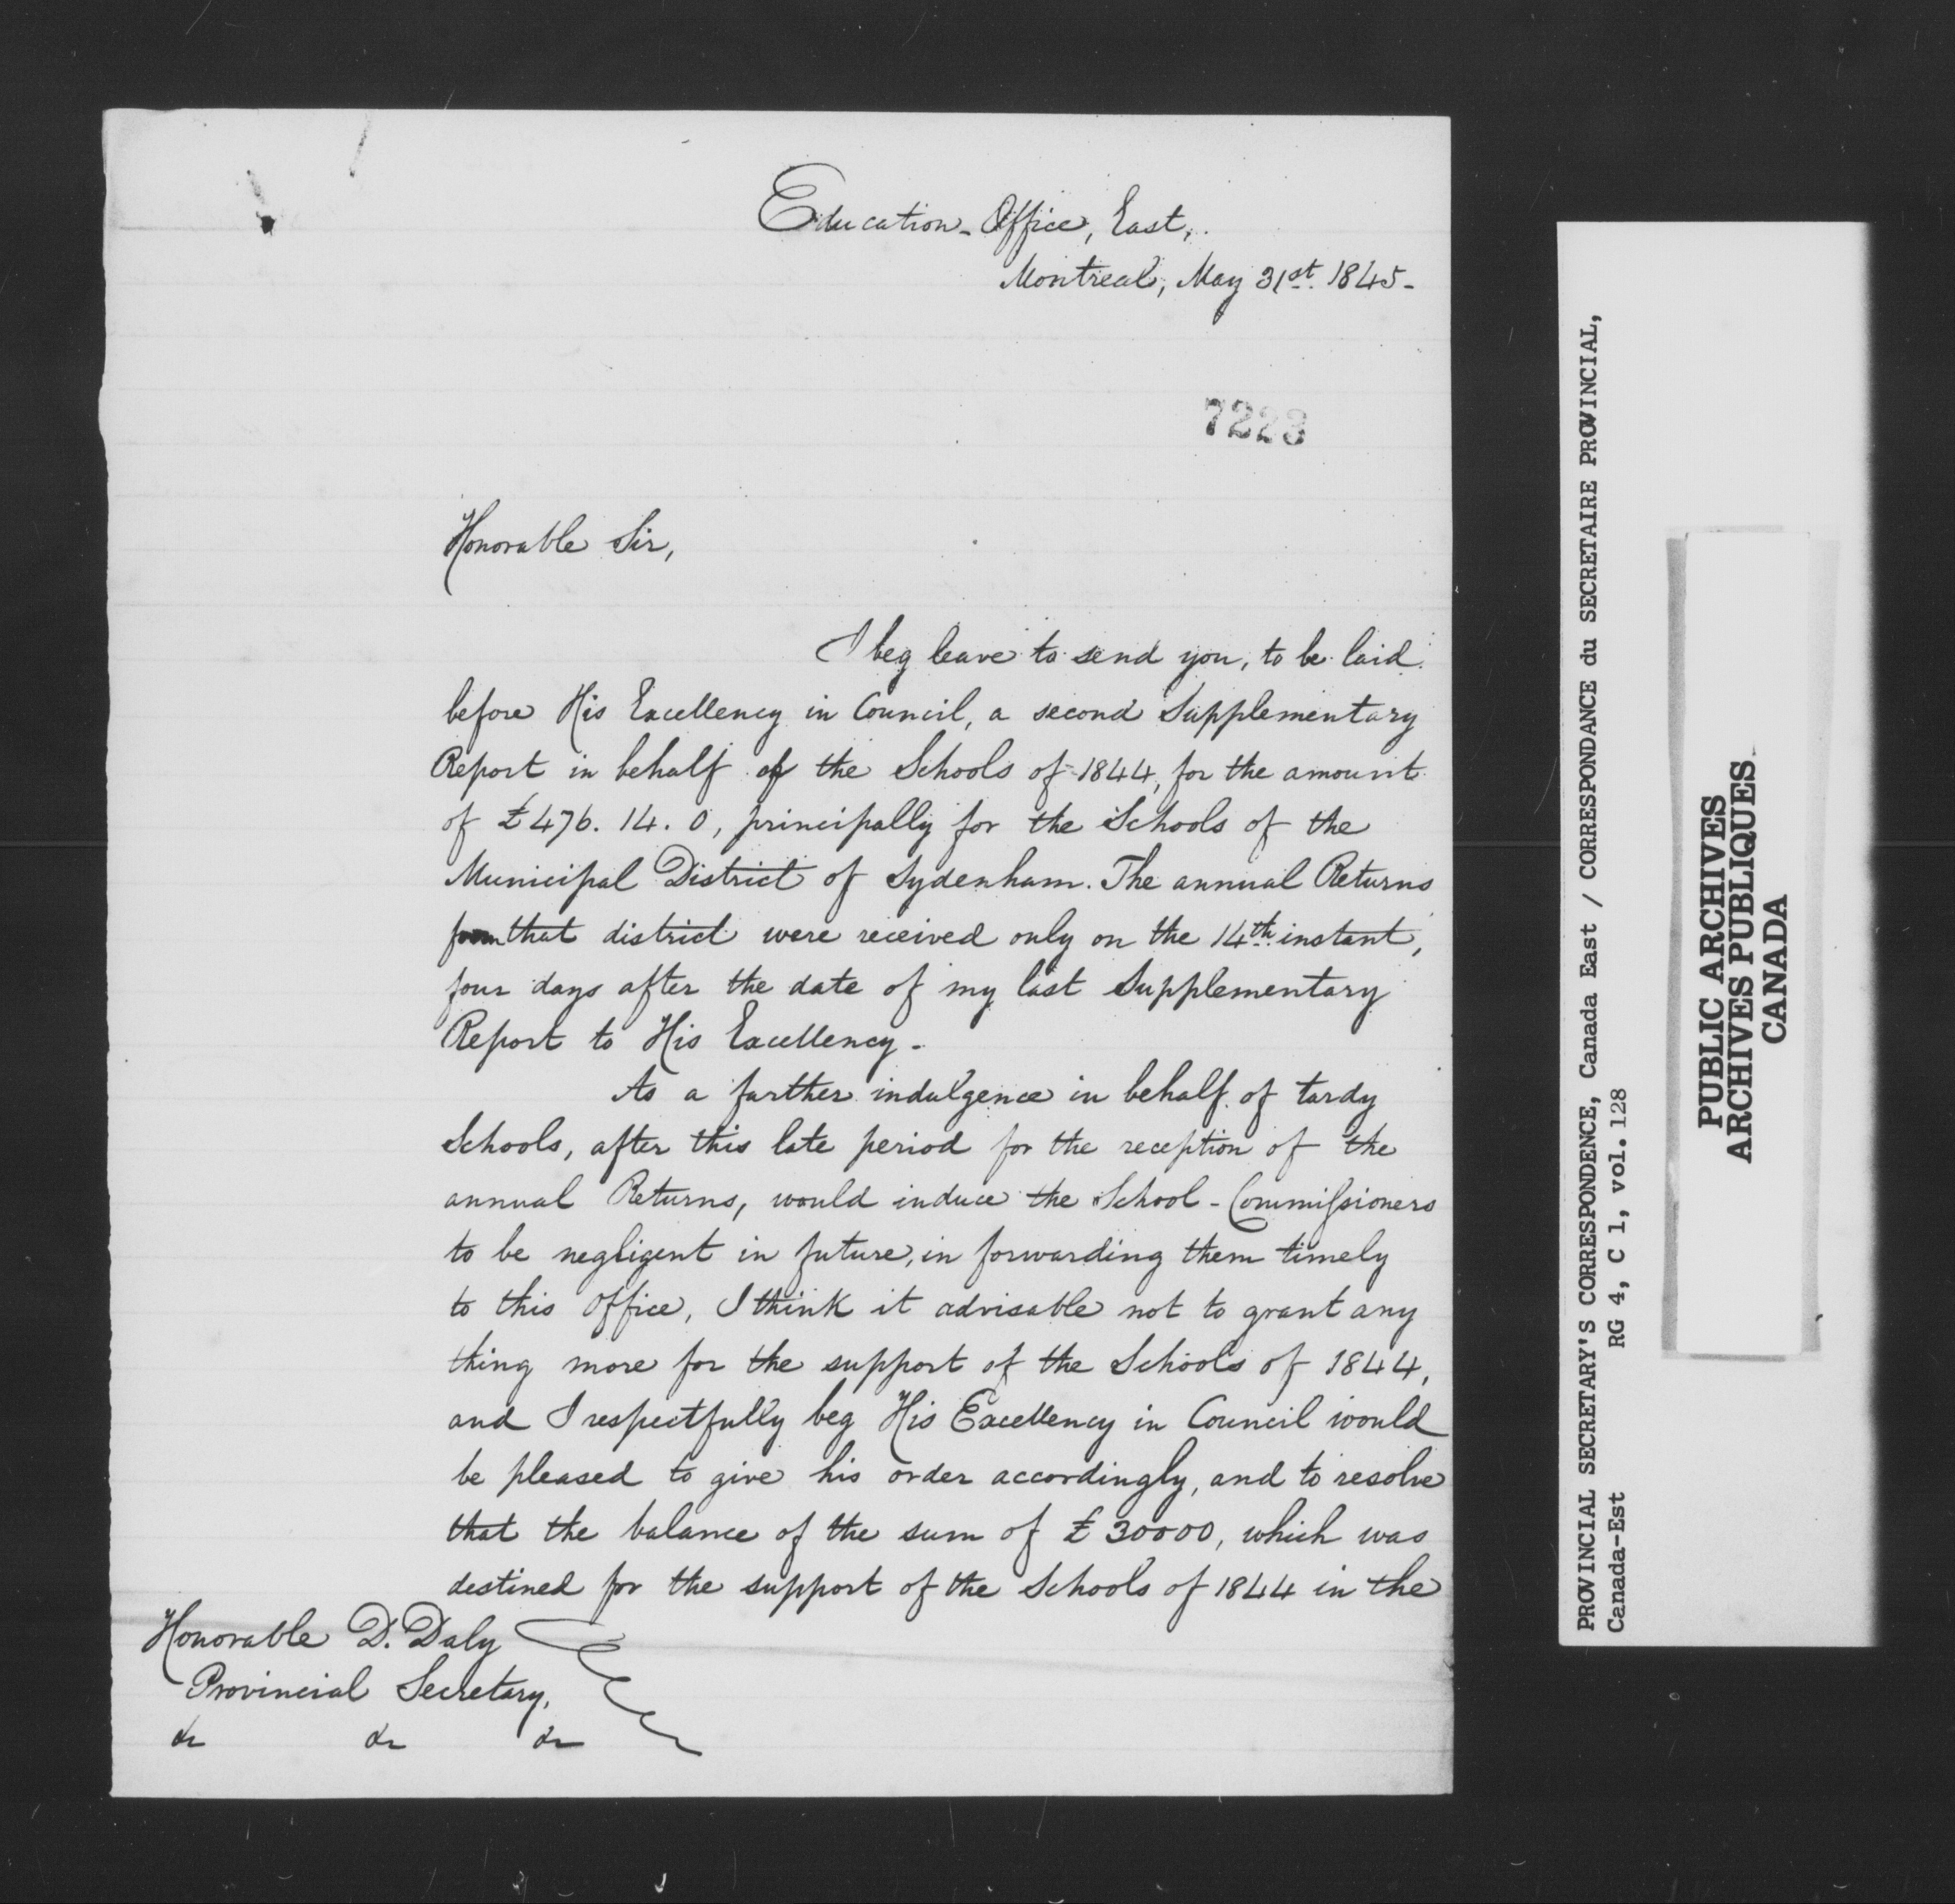 Education-Office, East,
Montreal, May 31st. 1845-
7223
Honorable Sir,
I beg leave to send you, to be laid
before His Excellency in Council, a second Supplementary
Report in behalf of the Schools of 1844, for the amount
of £476. 14. 0, principally for the Schools of the
Municipal District of Sydenham. The annual Returns
from that district were received only on the 14th. instant,
four days after the date of my last Supplementary
Report to His Excellency-
As a further indulgence in behalf of tardy
Schools, after this late period for the reception of the
annual Returns, would induce the School-Commissioners
to be negligent in future, in forwarding them timely
to this Office, I think it advisable not to grant any
thing more for the support of the Schools of 1844,
and I respectfully beg His Excellency in Council would
be pleased to give his order accordingly, and to resolve
that the balance of the sum of £30000, which was
destined for the support of the Schools of 1844 in the
Honorable D. Daly
Provincial Secretary,
&c &c &c
PROVINCIAL SECRETARY'S CORRESPONDENCE, Canada East / CORRESPONDANCE du SECRETAIRE PROVINCIAL,
Canada-Est RG 4, C 1, vol. 128
PUBLIC ARCHIVES
ARCHIVES PUBLIQUES
CANADA